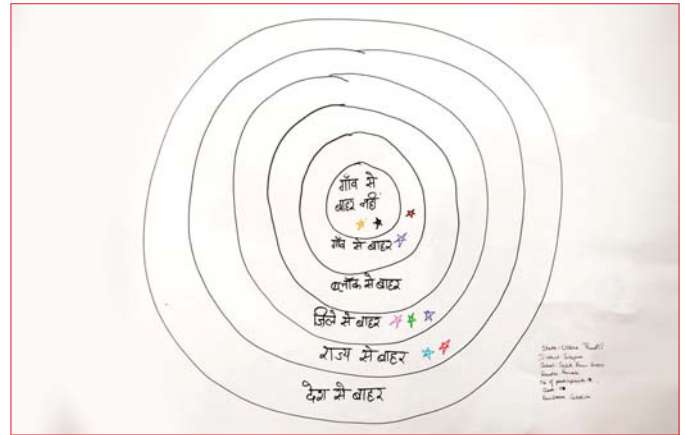 गाँव से
बाहर नहीं
गाँव से बाहर
ब्लॉक से बाहर
जिले से बाहर
राज्य से बाहर
देश से बाहर
State:
District
School:
Gender: Female
No of participants